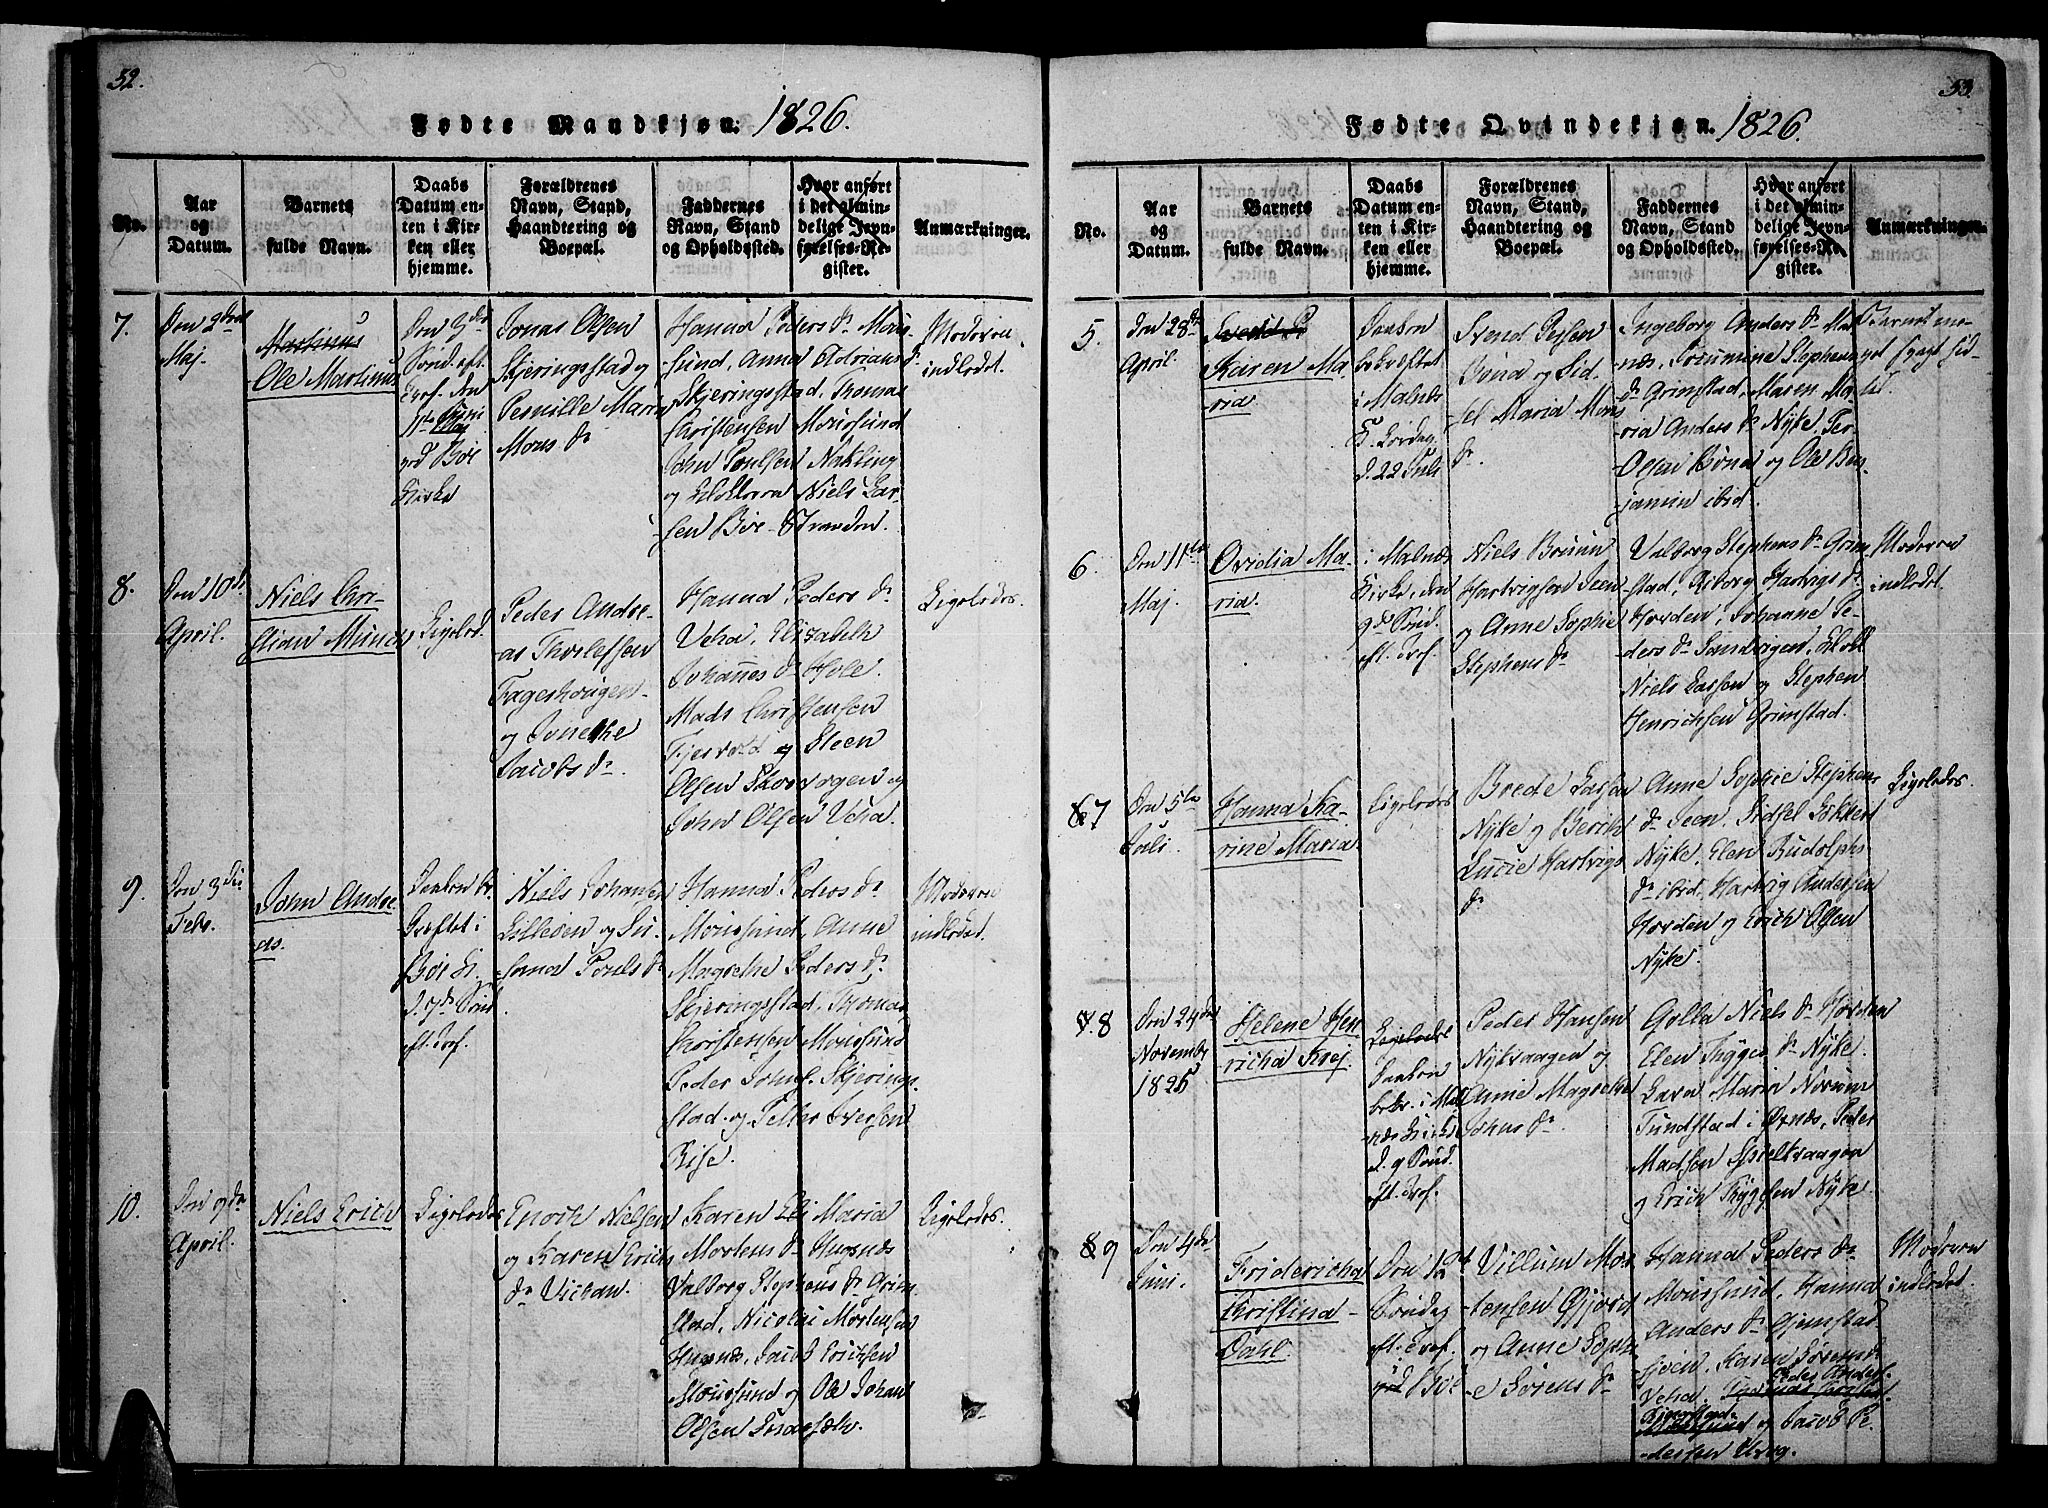 52.
Fødte Mandkjøn. 1826.
No.
Aar
og
Datum.
Barnets
fulde Navn.
Daabs
Datum en-
ten i Kir-
ken eller
hjemme.
Forældrenes
Navn, Stand,
Haandtering og
Boepæl.
Faddernes
Navn, Stand
og Opholdssted.
Hvor anført
i det almin-
delige Jevn-
førelses-Re-
gister.
Anmærkninger.
7.
Den 2den
Maj.
Martinus
Ole Martinus
Den
Sönd. eft.
Trof. den
11te
ved Böe
Kirke
Jonas Olsen
Skjeringstad og
Pernille Maria
Mons dr
Hanna Peders dr Mour-
sund, Anna Adrians dr
Skjeringstad, Thomas
Christensen Moursund
John Poulsen Nakling
og Klokkeren Niels Lar-
sen Böe-Stranden.
Moderen
indledet.
8.
Den 10de
April.
Niels Chri-
stian Münch
Ligeled.
Peder Andre-
as Thorlefsen
Fagerhougen
og Jonetke
Jacobs dr
Hanna Peders dr
Veha, Elisabeth
Johannes dr Hole.
Mads Christensen
Fjervold og Steen
Olsen Skorvogen og
John Olsen Veha.
Ligeledes.
9.
Den 3die
Febr.
John Andre-
as.
Daaben be-
kræftet i
Böe K.
D. 7de Sönd.
eft. Trof.
Niels Johansen
Lilleöen og Su-
sanna Pouls dr
Hanna Peders dr
Moursund, Anne
Magrethe Peders dr
Skjeringstad, Thomas
Christensen Moursund
Peder Johns. Skjering-
stad og Petter Iversen
Rise.
Moderen
indledet.
10.
Den 9de
April.
Niels Erich
Ligeledes
Enoch Nielsen
og Karen Erichs
dr Vichan.
Karen Maria
Mortens dr Husnæs
Valborg Stephens dr Grim-
stad, Nicolai Mortensen
Husnæs, Jacob Erichsen
Moursund og Ole Johan
Olsen
53.
Fødte Qvindekjøn. 1826.
No.
Aar
og
Datum.
Barnets
fulde Navn.
Daabs
Datum en-
ten i Kir-
ken eller
hjemme.
Forældrenes
Navn, Stand,
Haandtering og
Boepæl.
Faddernes
Navn, Stand
og Opholdssted.
Hvor anført
i det almin-
delige Jevn-
førelses-Re-
gister.
Anmærkninger.
5.
Den 28de
April.
Karen Ma-
ria
Daaben
bekræftet
i Malnes
K. Lördag
d. 22 Juli
Svend Persen
og Sid-
sel Maria Mons
dr
Ingeborg Anders dr Mal-
næs, Stephens
dr Grimstad, Maren Ma-
ria Anders dr Nyke, Per
Olsen og Ole Ben-
jamin ibid.
Barnet me-
get svagt
6.
Den 11te
Maj.
Ovidia Ma-
ria.
i Malnæs
Kirke, den
9de Sönd.
eft. Trof.
Niels Bruun
Hartvigsen Steen
og Anne Sophie
Stephens dr
Valborg Stephens dr Grim-
stad, Asborg Hartvigs dr
Horden, Johanne Pe-
ders dr Sandvigen, Klokk.
Niels Larsen og Stephen
Henrichsen Grimstad.
Moderen
indledet.
6 7
Den 5te
Juli.
Hanna Ka-
rine Maria
Ligeledes
Brede Larsen
Nyke og Berith
Lucie Hartvigs
dr
Anne Sophie Stephens
dr Steen, Sidsel
Nyke, Elen Rudolphs
dr ibid, Hartvig Andersen
Horden og Erich Olsen
Nyke.
Ligeledes.
7 8
Den 24de
Novembr
1825
Helene Hen-
richa Krej.
Ligeledes
Daaben
bekr. i Mal-
næs Kirke
d. 9 Sönd.
eft. Trof.
Peder Hansen
Nykvaagen og
Anne Magrethe
Johns dr
Golla Niels dr Horden
Elen Trygges dr Nyke.
Lava Maria
Tundstad i Örnæs, Peder
Madsen Spielkvaagen
og Erich Tryggsen Nyke
8 9
Den 4de
Juni.
Fridericha
Christina
Dahl.
Den 12te
Söndag
eft. Trof.
ved Böe
Villum Mor-
tensen Gjerde
og Anne Soph-
ie Sörens dr
Hanna Peders dr
Moursund, Hanna
Anders dr Grimstad
Karen Sörens dr
Veha, Peder Anders.
og Jacob Pe-
dersen
Moderen
indledet